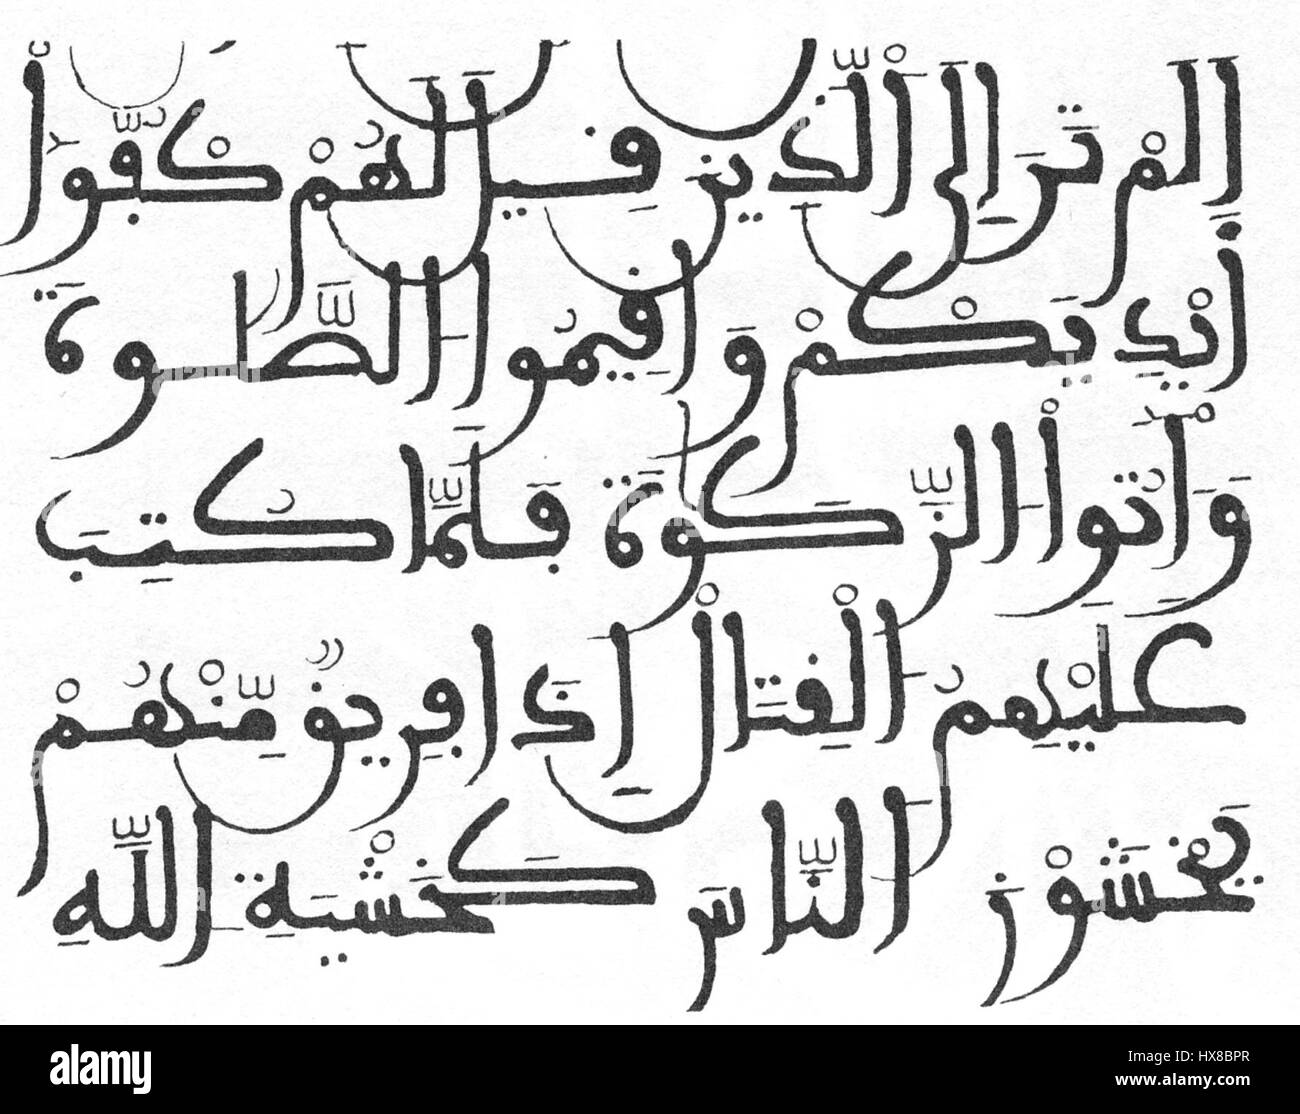 اَلَمْ تَرَ إِلَى اَلذِينَ قِيلَ لَهُمْ كُفُّواْ
أَيْدِيَكُمْ وَأَقِيمُواْ اُلصَّلَوٰةَ
وَءَاتُواْ اُلزَّكَوٰةَ فَلَمَّا كُتِبَ
عَلَيْهِمُ اُلْقِتَالُ إِذَا فَرِيقٌ مِّنْهُمْ
يَخْشَوْنَ اَلنَّاسَ كَخَشْيَةِ اِللَّهِ
alamy
Image ID: HX8BPR
www.alamy.com